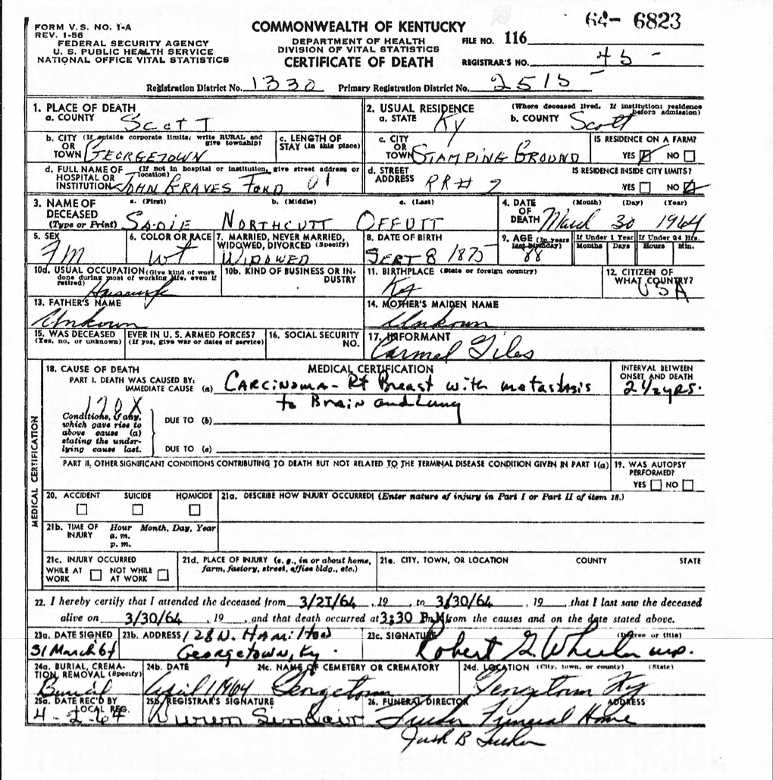 FORM V.S. NO. 1-A
REV. 1-56
FEDERAL SECURITY AGENCY
U. S. PUBLIC HEALTH SERVICE
NATIONAL OFFICE VITAL STATISTICS
COMMONWEALTH OF KENTUCKY
DEPARTMENT OF HEALTH
DIVISION OF VITAL STATISTICS
CERTIFICATE OF DEATH
64- 6823
FILE NO. 116
REGISTRAR'S NO. 45-
Registration District No. 1330 Primary Registration District No. 2515
1. PLACE OF DEATH
a. COUNTY Scott
2. USUAL RESIDENCE (Where deceased lived. If institution: residence before admission)
a. STATE Ky b. COUNTY Scott
b. CITY (If outside corporate limits, write RURAL and give township)
OR TOWN Georgetown
c. LENGTH OF STAY (in this place)
c. CITY OR TOWN Stamping Ground
IS RESIDENCE ON A FARM?
YES NO
d. FULL NAME OF (If not in hospital or institution, give street address or location)
HOSPITAL OR INSTITUTION John Graves Ford 01
d. STREET ADDRESS RR# 2
IS RESIDENCE INSIDE CITY LIMITS?
YES NO
3. NAME OF DECEASED (Type or Print)
a. (First) b. (Middle) c. (Last)
Sadie Northcutt Offutt
4. DATE OF DEATH (Month) (Day) (Year)
March 30 1964
5. SEX
FM
6. COLOR OR RACE
WT
7. MARRIED, NEVER MARRIED, WIDOWED, DIVORCED (Specify)
Widowed
8. DATE OF BIRTH
Sept 8 1875
9. AGE (In years last birthday) If Under 1 Year If Under 24 Hrs.
Months Days Hours Min.
88
10d. USUAL OCCUPATION (Give kind of work done during most of working life, even if retired)
Housewife
10b. KIND OF BUSINESS OR INDUSTRY
11. BIRTHPLACE (State or foreign country)
Ky
12. CITIZEN OF WHAT COUNTRY?
USA
13. FATHER'S NAME
Unknown
14. MOTHER'S MAIDEN NAME
Unknown
15. WAS DECEASED EVER IN U. S. ARMED FORCES?
(Yes, no, or unknown) (If yes, give war or dates of service)
16. SOCIAL SECURITY NO.
17. INFORMANT
Carmel Giles
MEDICAL CERTIFICATION
18. CAUSE OF DEATH
MEDICAL CERTIFICATION
INTERVAL BETWEEN ONSET AND DEATH
PART I. DEATH WAS CAUSED BY:
IMMEDIATE CAUSE (a) Carcinoma - Rt Breast with metastasis
to Brain and lung
2 1/2 yrs.
170X
Conditions, if any, which gave rise to above cause (a) stating the underlying cause last.
DUE TO (b)
DUE TO (c)
PART II. OTHER SIGNIFICANT CONDITIONS CONTRIBUTING TO DEATH BUT NOT RELATED TO THE TERMINAL DISEASE CONDITION GIVEN IN PART I(a)
19. WAS AUTOPSY PERFORMED?
YES NO
20. ACCIDENT SUICIDE HOMICIDE
21a. DESCRIBE HOW INJURY OCCURRED: (Enter nature of injury in Part I or Part II of item 18.)
21b. TIME OF INJURY Hour Month, Day, Year
a. m.
p. m.
21c. INJURY OCCURRED
WHILE AT WORK NOT WHILE AT WORK
21d. PLACE OF INJURY (e. g., in or about home, farm, factory, street, office bldg., etc.)
21e. CITY, TOWN, OR LOCATION COUNTY STATE
22. I hereby certify that I attended the deceased from 3/21/64, 19 to 3/30/64, 19 that I last saw the deceased
alive on 3/30/64, 19 and that death occurred at 3:30 P.M. from the causes and on the date stated above.
23a. DATE SIGNED
31 March 64
23b. ADDRESS 128 N. Hamilton
Georgetown, Ky.
23c. SIGNATURE (Degree or title)
Robert G Wheeler M.D.
24a. BURIAL, CREMATION, REMOVAL (Specify)
Burial
24b. DATE
April 1 1964
24c. NAME OF CEMETERY OR CREMATORY
Georgetown
24d. LOCATION (City, town, or county) (State)
Georgetown Ky
25a. DATE REC'D BY LOCAL REG.
4-2-64
25b. REGISTRAR'S SIGNATURE
Sinclair
26. FUNERAL DIRECTOR ADDRESS
Tucker Funeral Home
B Tucker